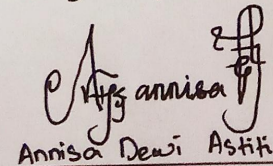 annisa
Annisa Dewi Astiti